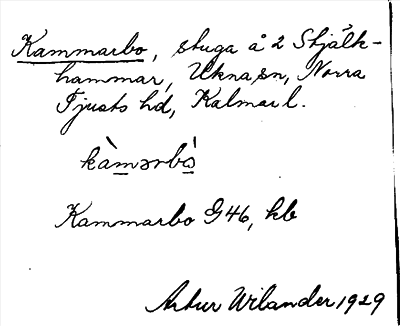 Kammarbo, stuga å 2 Stjälk-
hammar, Ukna sn, Norra
Tjusts hd, Kalmar l.
kàmərbó
Kammarbo G46, kb
Artur Wilander 1929